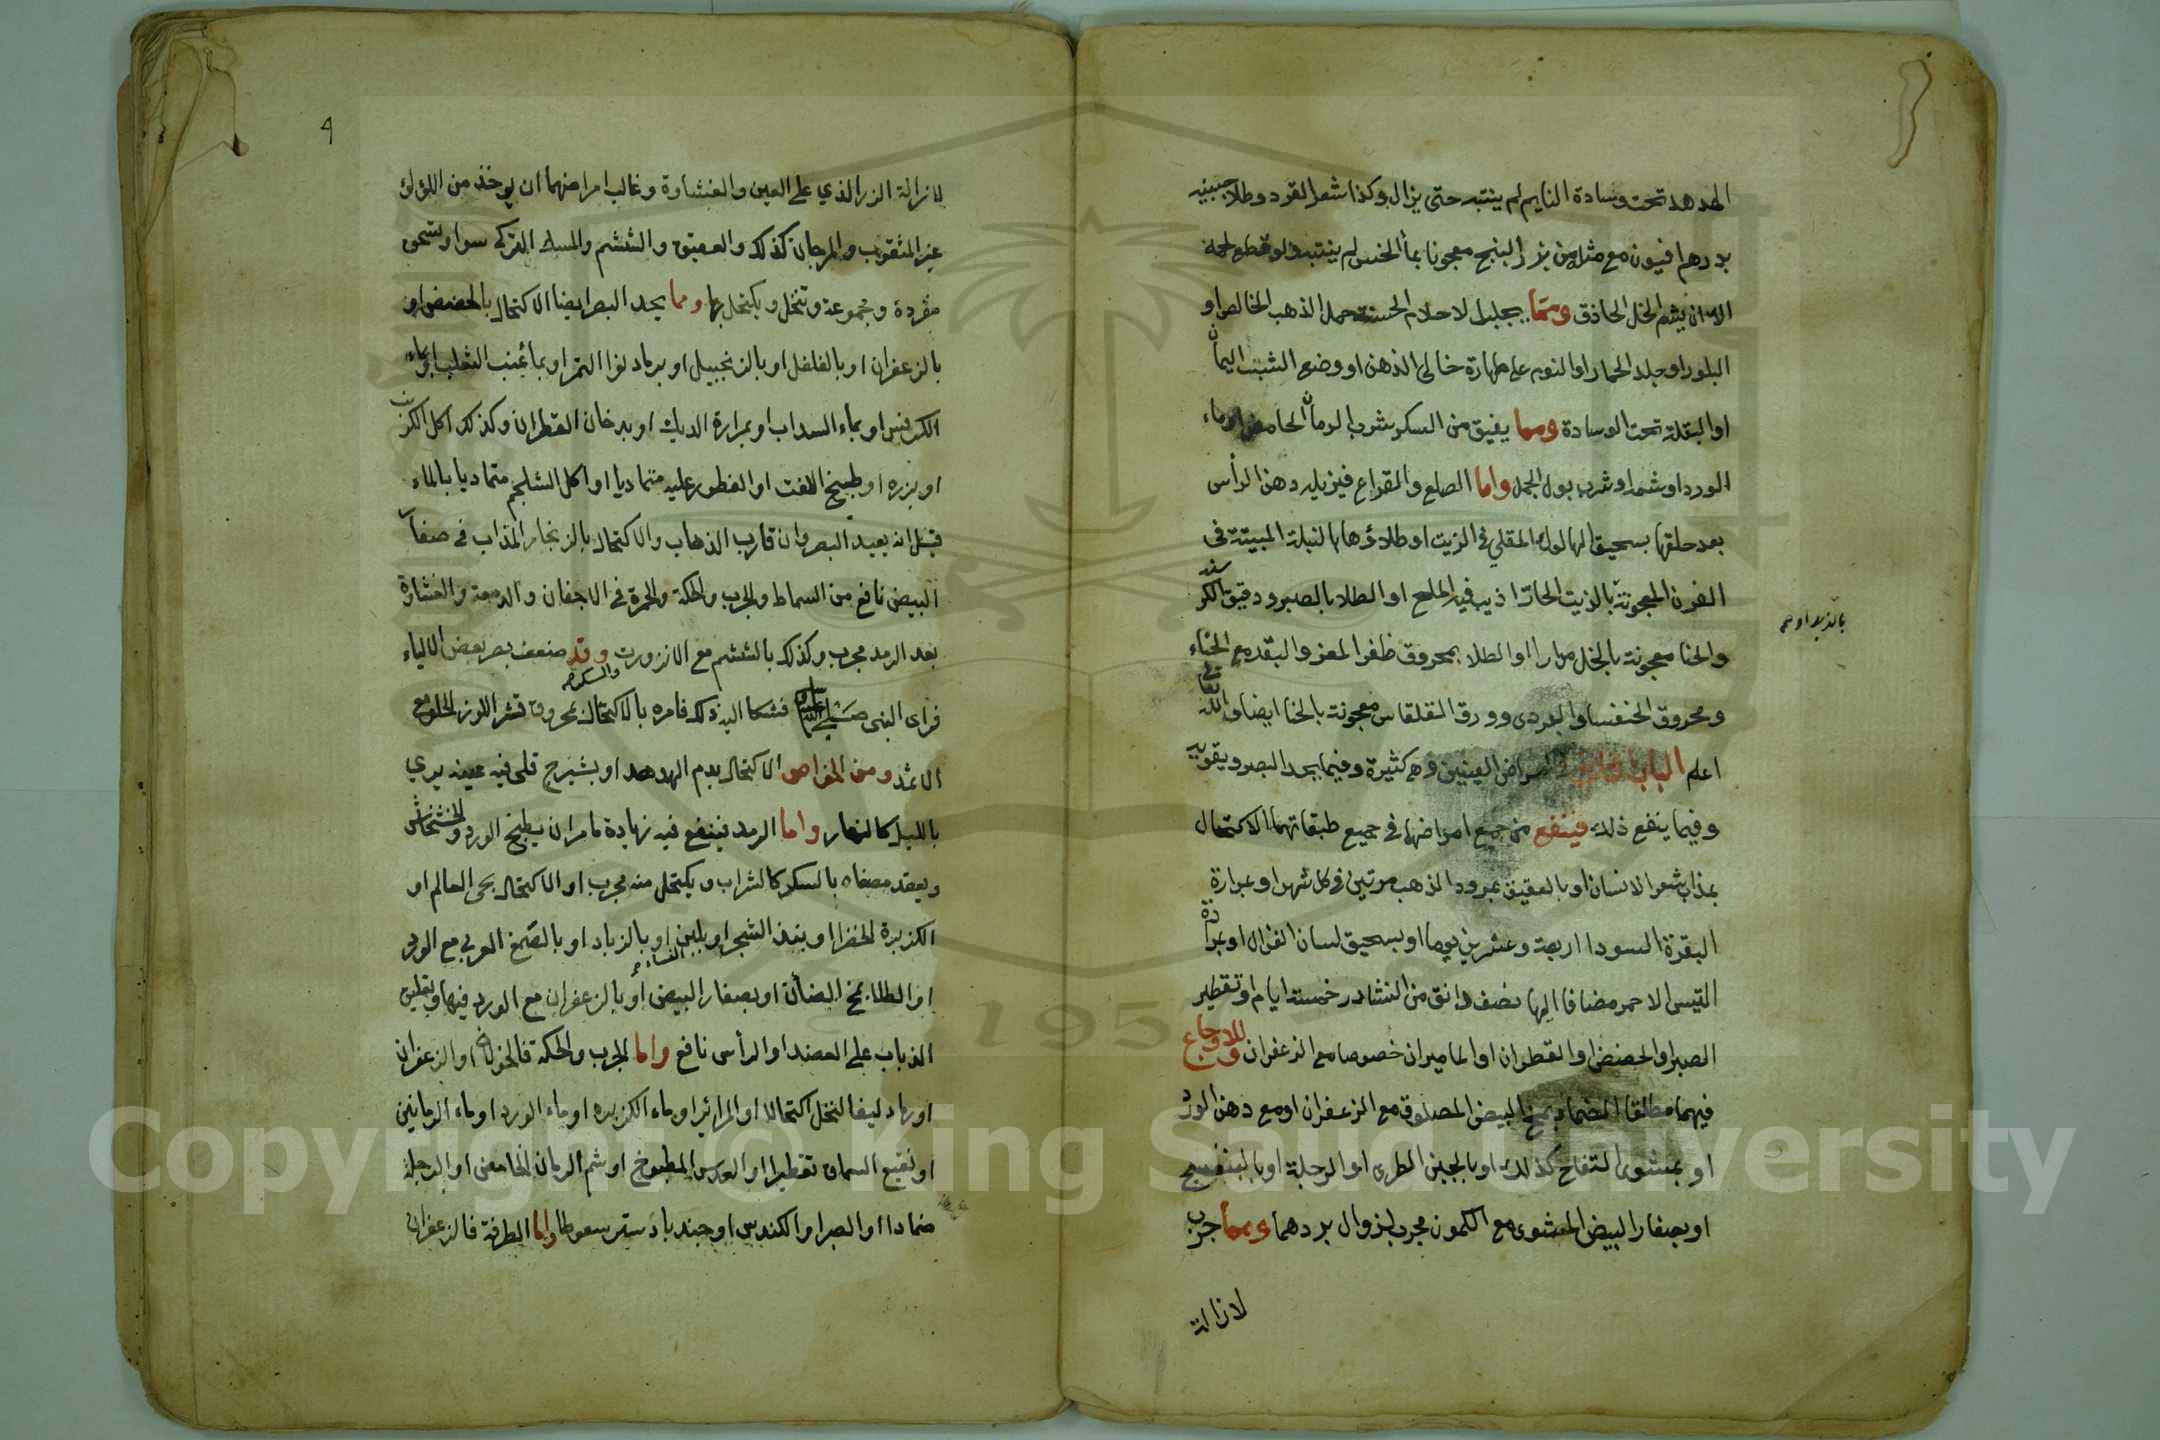 الهدهد تحت وسادة النايم لم ينتبه حتى يزال وكذا شعر القرد وطلا جبينه
بدرهم افيون مع مثله من بزر البنج معجونا بماء الخس لم ينتبه ولو قطع لحمه
الا ان يشم الخل الحاذق ومما يجلب الاحلام الحسنة حمل الذهب الخالص او
البلور او جلد الحمار او النوم على طهارة خالي الذهن او وضع الشبت اليماني
او البقلة تحت الوسادة ومما يفيق من السكر شرب الرمان الحامض او ماء
الورد او شمه او شرب بول الجمل واما الصلع والقراع فيزيله دهن الرأس
بعد حلقها بسحيق الهالوك المقلي في الزيت او طلاؤها بالنيلة المبيتة في
الفرن المعجونة بالزيت الحار اذيب فيه الملح او الطلا بالصبر ودقيق الكرسنه
والحنا معجونة بالخل مرارا او الطلا بمحروق ظفر المعز والبقر مع الحناء
ومحروق الخنفسا والبردى وورق القلقاس معجونة بالحنا ايضا والله تعالى
اعلم الباب في امراض العينين وهي كثيرة وفيما يحد البصر ويقويه
وفيما ينفع ذلك فينفع من جميع امراضها في جميع طبقاتهما الاكتحال
بمذاب شعر الانسان او بالعقيق بمرود الذهب مرتين في كل شهر او بمرارة
البقرة السودا اربعة وعشرين يوما او بسحيق لسان الغزال او بمرارة
التيس الاحمر مضافا اليها نصف دانق من النشادر خمسة ايام او تقطير
الصبر او الحضض او القطران او الماميران خصوصا مع الزعفران وللاوجاع
فيهما مطلقا الضماد بمخ البيض المصلوق مع الزعفران او مع دهن الورد
او بمشوى التفاح كذلك او بالجبن الطرى او الرجلة او بالبنفسج
او بصفار البيض المشوى مع الكمون مجرب لزوال بردهما ومما جرب
لازالة
لازالة الزر الذي على العين والغشاوة وغالب امراضهما ان يوخذ من اللؤلؤ
غير المثقوب والمرجان كذلك والعقيق والششم والمسك التركي سوا وتسحق
مفردة ومجموعة وتنخل ويكتحل بها ومما يحد البصر ايضا الاكتحال بالحضض او
بالزعفران او بالفلفل او بالزنجبيل او برماد نوا التمر او بماء عنب الثعلب او بماء
الكرفس او بماء السداب او بمرارة الديك او بدخان القطران وكذلك اكل الكرنب
او بزره او طبيخ اللفت او الفطور عليه متماديا او اكل الشلجم متماديا بالماء
قيل انه يعيد البصر وان قارب الذهاب والاكتحال بالزنجار المذاب في صفار
البيض نافع من السماط والجرب والحكة والحمرة في الاجفان والدمعة والغشاوة
بعد الرمد مجرب وكذلك بالششم مع الانزورت والسكر وقد ضعف بصر بعض الاولياء
فراى النبى صلى الله عليه وسلم فشكا اليه ذلك فامره بالاكتحال بمحروق قشر اللوز المخلوط مع
الاثمد ومن الخواص الاكتحال بدم الهدهد او بشيرج قلى فيه عينه يرى
بالليل كالنهار واما الرمد فينفع فيه زيادة ما مر ان يطبخ الورد والخشخاش
ويعقد مصفاه بالسكر كالشراب ويكتحل منه مجرب او الاكتحال بحى العالم او
الكزبرة الخضرا او بلبن النساء او بالزباد او بالصمغ العربي مع الورد
او الطلا بمخ الضأن او بصفار البيض او بالزعفران مع الورد فيها وتعليق
الذباب على العضد او الرأس نافع واما الجرب والحكة فالخولان او الزعفران
او رماد ليف النخل اكتحالا او المرائر او ماء الكزبره او ماء الورد او ماء الرمانين
او نقيع السماق تقطيرا او العدس المطبوخ او شحم الرمان الحامض او الرجلة
ضمادا او الصبر او الكندس او جندبادستر سعوطا واما الطرفة فالزعفران